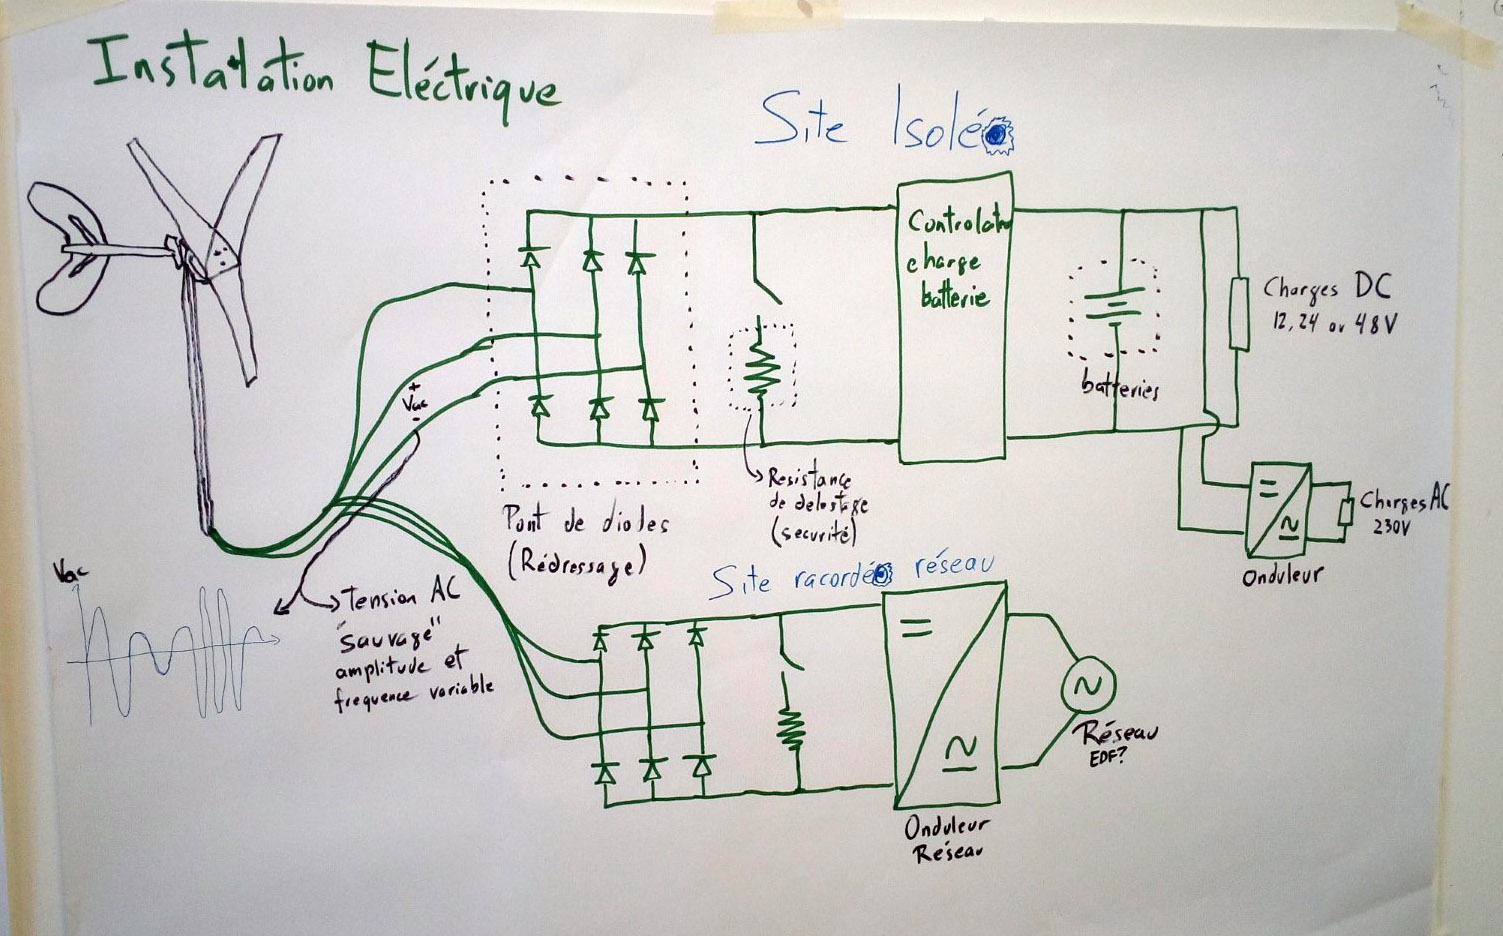 Installation Eléctrique
Site Isolé
Controlateur
charge
batterie
Charges DC
12, 24 ou 48V
batteries
+
Vac
-
Resistance
de delestage
(securité)
Pont de diodes
(Rédressage)
Charges AC
230V
Onduleur
Site racordé réseau
Vac
Tension AC
"sauvage"
amplitude et
frequence variable
Réseau
EDF?
Onduleur
Réseau